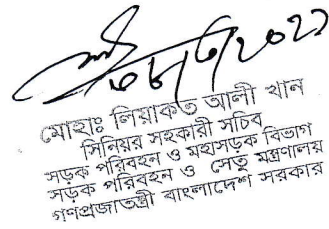 মোহাঃ লিয়াকত আলী খান
সিনিয়র সহকারী সচিব
সড়ক পরিবহন ও মহাসড়ক বিভাগ
সড়ক পরিবহন ও সেতু মন্ত্রণালয়
গণপ্রজাতন্ত্রী বাংলাদেশ সরকার